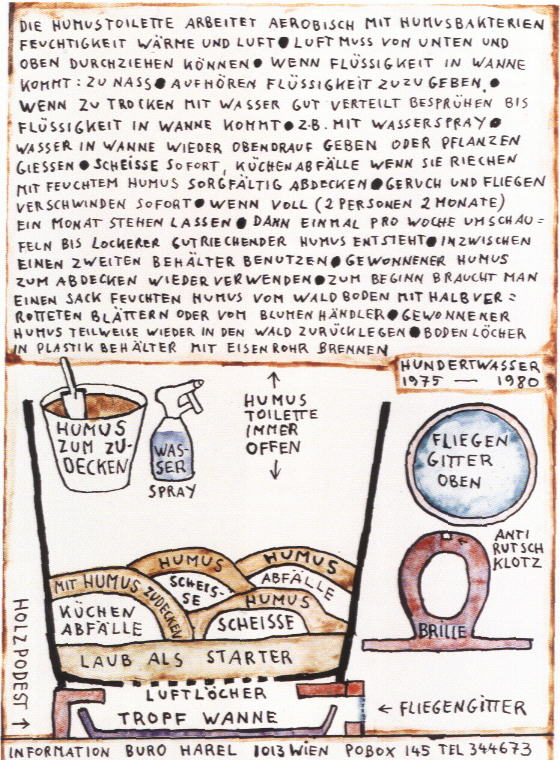 DIE HUMUSTOILETTE ARBEITET AEROBISCH MIT HUMUSBAKTERIEN
FEUCHTIGKEIT WÄRME UND LUFT ● LUFT MUSS VON UNTEN UND
OBEN DURCHZIEHEN KÖNNEN ● WENN FLÜSSIGKEIT IN WANNE
KOMMT: ZU NASS ● AUFHÖREN FLÜSSIGKEIT ZUZUGEBEN. ●
WENN ZU TROCKEN MIT WASSER GUT VERTEILT BESPRÜHEN BIS
FLÜSSIGKEIT IN WANNE KOMMT ● Z.B. MIT WASSERSPRAY ●
WASSER IN WANNE WIEDER OBENDRAUF GEBEN ODER PFLANZEN
GIESSEN ● SCHEISSE SOFORT, KÜCHENABFÄLLE WENN SIE RIECHEN
MIT FEUCHTEM HUMUS SORGFÄLTIG ABDECKEN ● GERUCH UND FLIEGEN
VERSCHWINDEN SOFORT ● WENN VOLL (2 PERSONEN 2 MONATE)
EIN MONAT STEHEN LASSEN ● DANN EINMAL PRO WOCHE UMSCHAU=
FELN BIS LOCKERER GUTRIECHENDER HUMUS ENTSTEHT ● INZWISCHEN
EINEN ZWEITEN BEHÄLTER BENUTZEN ● GEWONNENER HUMUS
ZUM ABDECKEN WIEDER VERWENDEN ● ZUM BEGINN BRAUCHT MAN
EINEN SACK FEUCHTEN HUMUS VOM WALDBODEN MIT HALBVER=
ROTTETEN BLÄTTERN ODER VOM BLUMENHÄNDLER ● GEWONNENER
HUMUS TEILWEISE WIEDER IN DEN WALD ZURÜCKLEGEN ● BODENLÖCHER
IN PLASTIKBEHÄLTER MIT EISENROHR BRENNEN
HUNDERTWASSER
1975 — 1980
HUMUS
ZUM ZU-
DECKEN
WAS-
SER
SPRAY
HUMUS
TOILETTE
IMMER
OFFEN
FLIEGEN
GITTER
OBEN
ANTI
RUTSCH
KLOTZ
BRILLE
HUMUS
SCHEIS-
SE
HUMUS
ABFÄLLE
MIT HUMUS ZUDECKEN
KÜCHEN
ABFÄLLE
HUMUS
SCHEISSE
LAUB ALS STARTER
LUFTLÖCHER
TROPF WANNE
HOLZPODEST →
← FLIEGENGITTER
INFORMATION BURO HAREL 1013 WIEN POBOX 145 TEL 344673